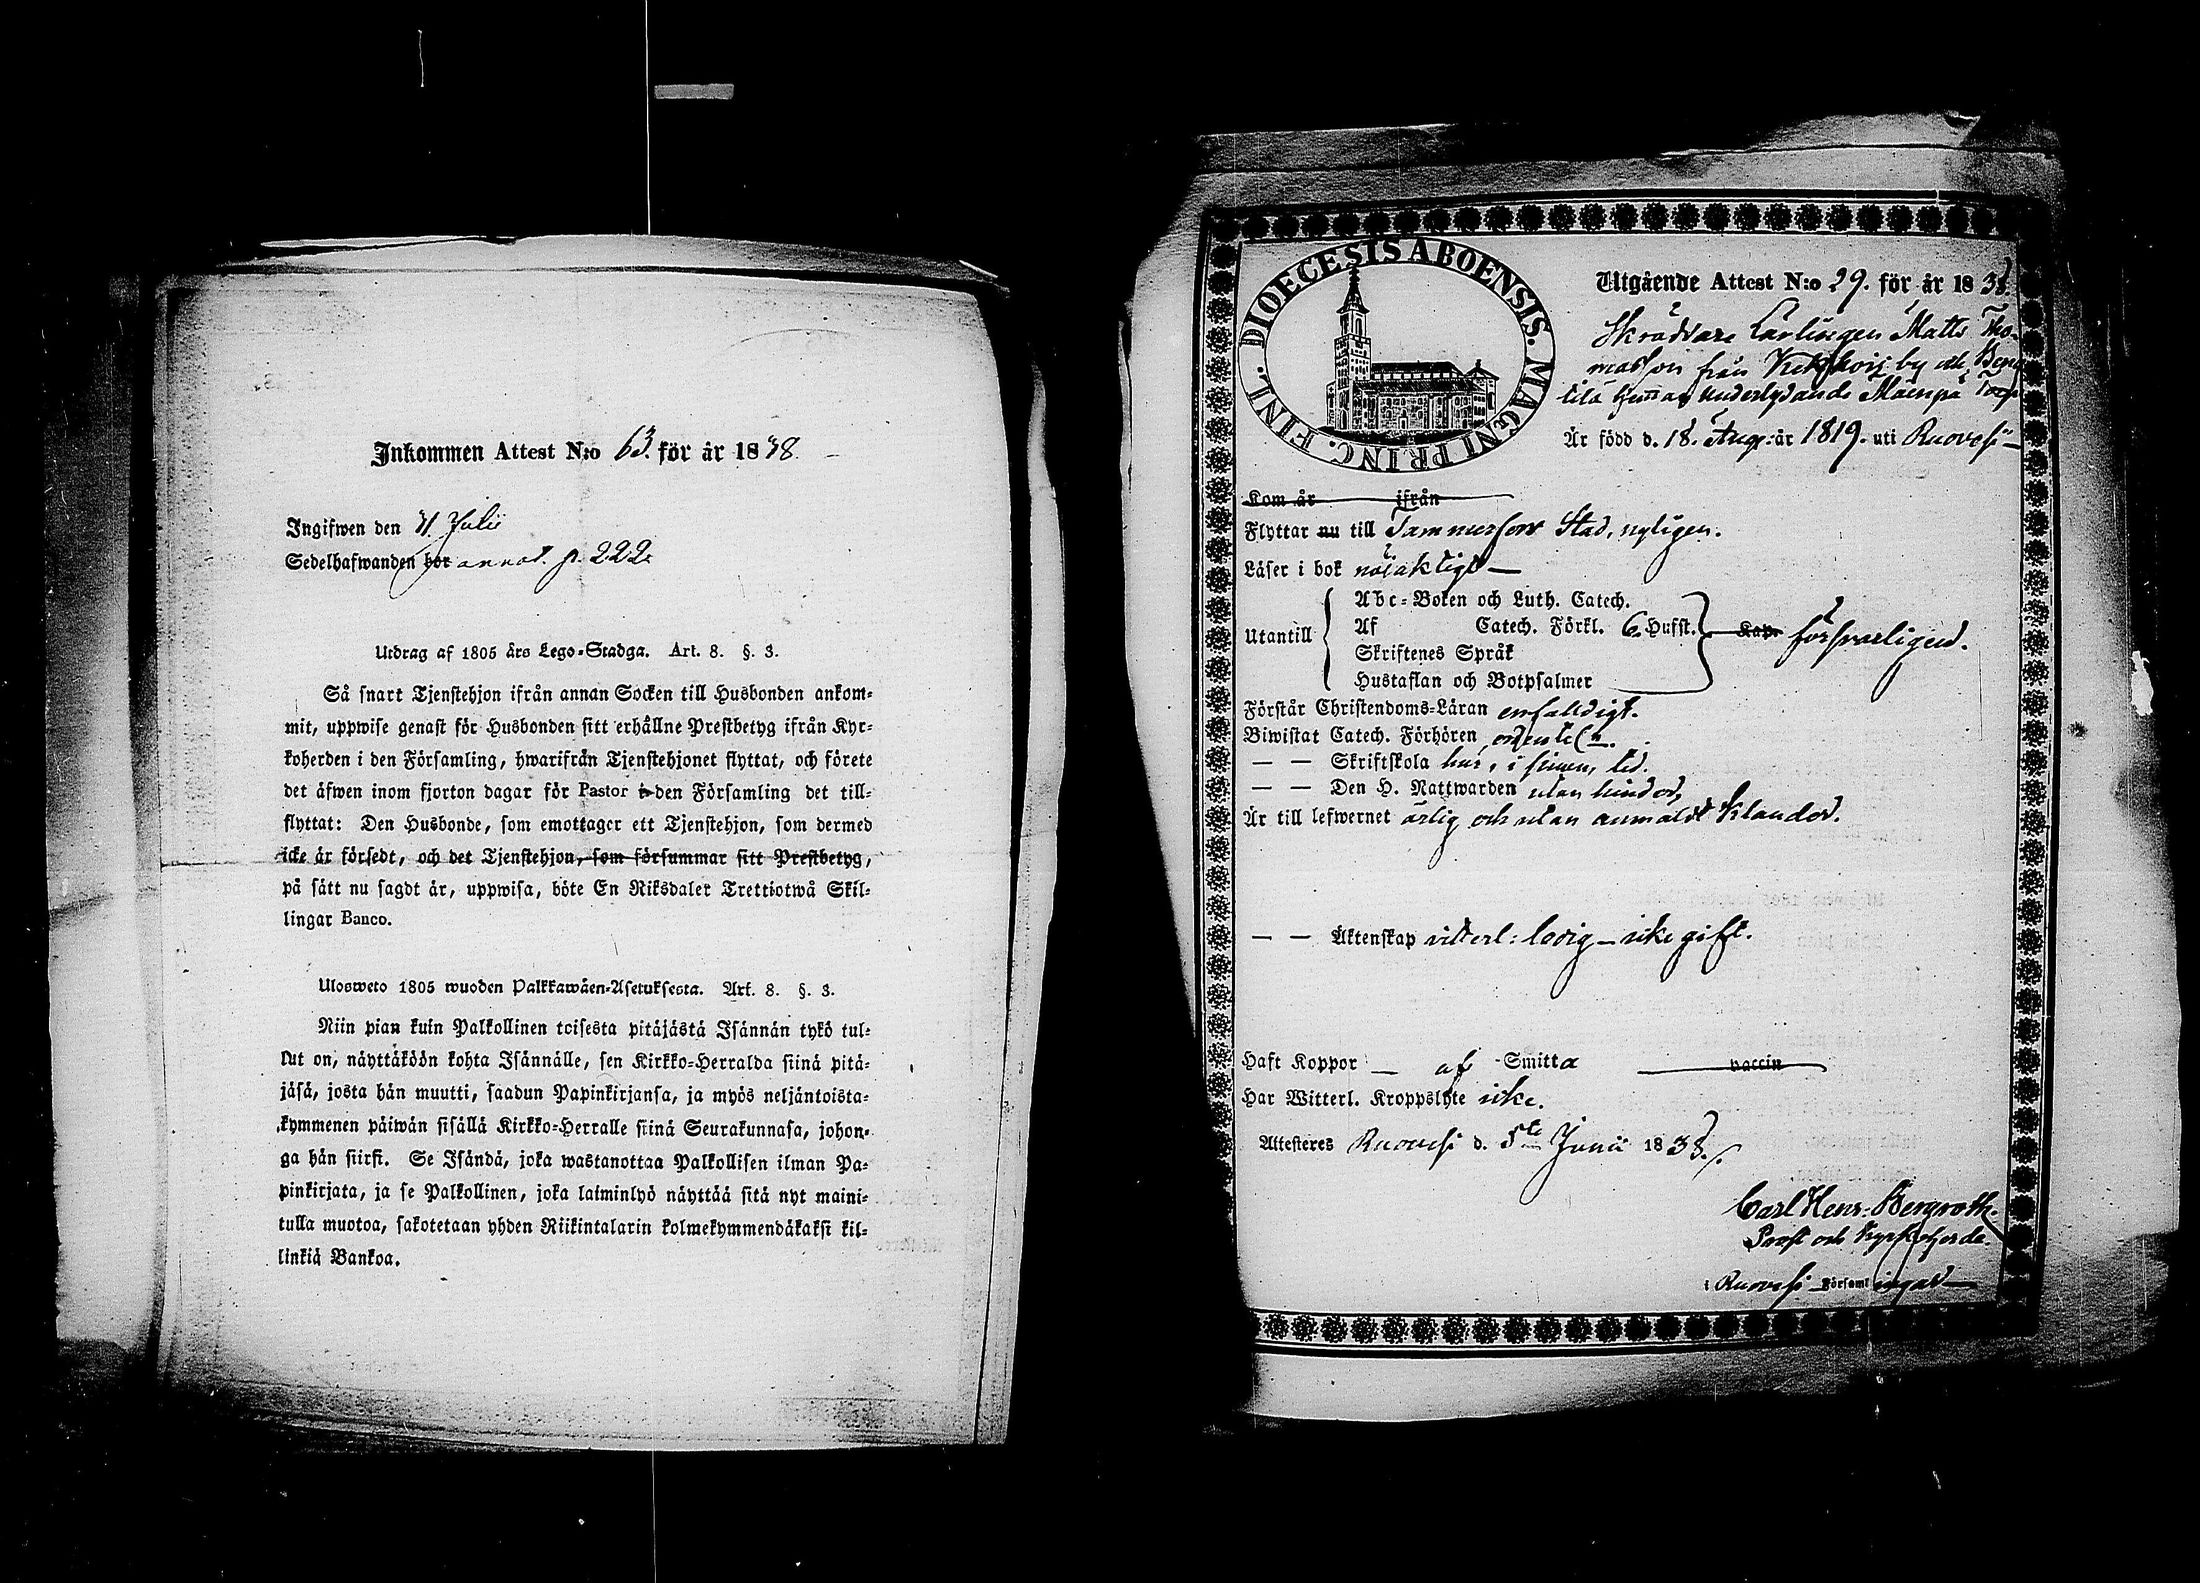 Inkommen Attest N:o 63. för år 1838
Ingifwen den 31 Julii
Sedelhafwanden bor annot. p. 222.
Utdrag af 1805 års Lego-Stadga. Art. 8. §. 3.
Så snart Tjenstehjon ifrån annan Socken till Husbonden ankom-
mit, uppwise genast för Husbonden sitt erhållne Prestbetyg ifrån Kyr-
koherden i den Församling, hwarifrån Tjenstehjonet flyttat, och förete
det äfwen inom fjorton dagar för Pastor i den Församling det till-
flyttat: Den Husbonde, som emottager ett Tjenstehjon, som dermed
icke är försedt, och det Tjenstehjon, som försummar sitt Prestbetyg,
på sätt nu sagdt är, uppwisa, böte En Riksdaler Trettiotwå Skil-
lingar Banco.
Ulosweto 1805 wuoden Palkkawäen-Asetuksesta. Art. 8. §. 3.
Niin pian kuin Palkollinen toisesta pitäjästä Isännän tykö tul-
lut on, näyttäköön kohta Isännälle, sen Kirkko-Herralda siinä pitä-
jäsä, josta hän muutti, saadun Papinkirjansa, ja myös neljäntoista-
kymmenen päiwän sisällä Kirkko-Herralle siinä Seurakunnasa, johon-
ga hän siirsi. Se Isändä, joka wastanottaa Palkollisen ilman Pa-
pinkirjata, ja se Palkollinen, joka laiminlyö näyttää sitä nyt maini-
tulla muotoa, sakotetaan yhden Riikintalarin kolmekymmendäkaksi kil-
linkiä Bankoa.
DIOECESIS ABOENSIS. MAGNI PRINC. FINL.
Utgående Attest N:o 29. för år 1838
Skräddare Lärlingen Matts Tho-
masson från by
underlydande Mäenpä Torp
Är född d. 18. Aug: år 1819. uti Ruovesi
Kom år ifrån
Flyttar nu till Tammerfors Stad, nyligen.
Läser i bok nöjaktigt
Utantill
Abc-Boken och Luth. Catech.
Af Catech. Förkl. 6. Hufst. Kap. försvarligen.
Skriftenes Språk
Hustaflan och Botpsalmer
Förstår Christendoms-Läran enfaldigt.
Biwistat Catech. Förhören ordentel:n.
— — Skriftskola här, i sinom tid.
— — Den H. Nattwarden utan hinder,
Är till lefwernet ärlig och utan anmäldt klander.
— — Äktenskap vitterl: ledig — icke gift.
Haft Koppor — af Smitta vaccin
Har Witterl. Kroppslyte icke.
Attesteres Ruovesi d. 5te Junii 1838.
Carl Henr: Bergroth.
Prost och Kyrkoherde.
i Ruovesi Församlingar